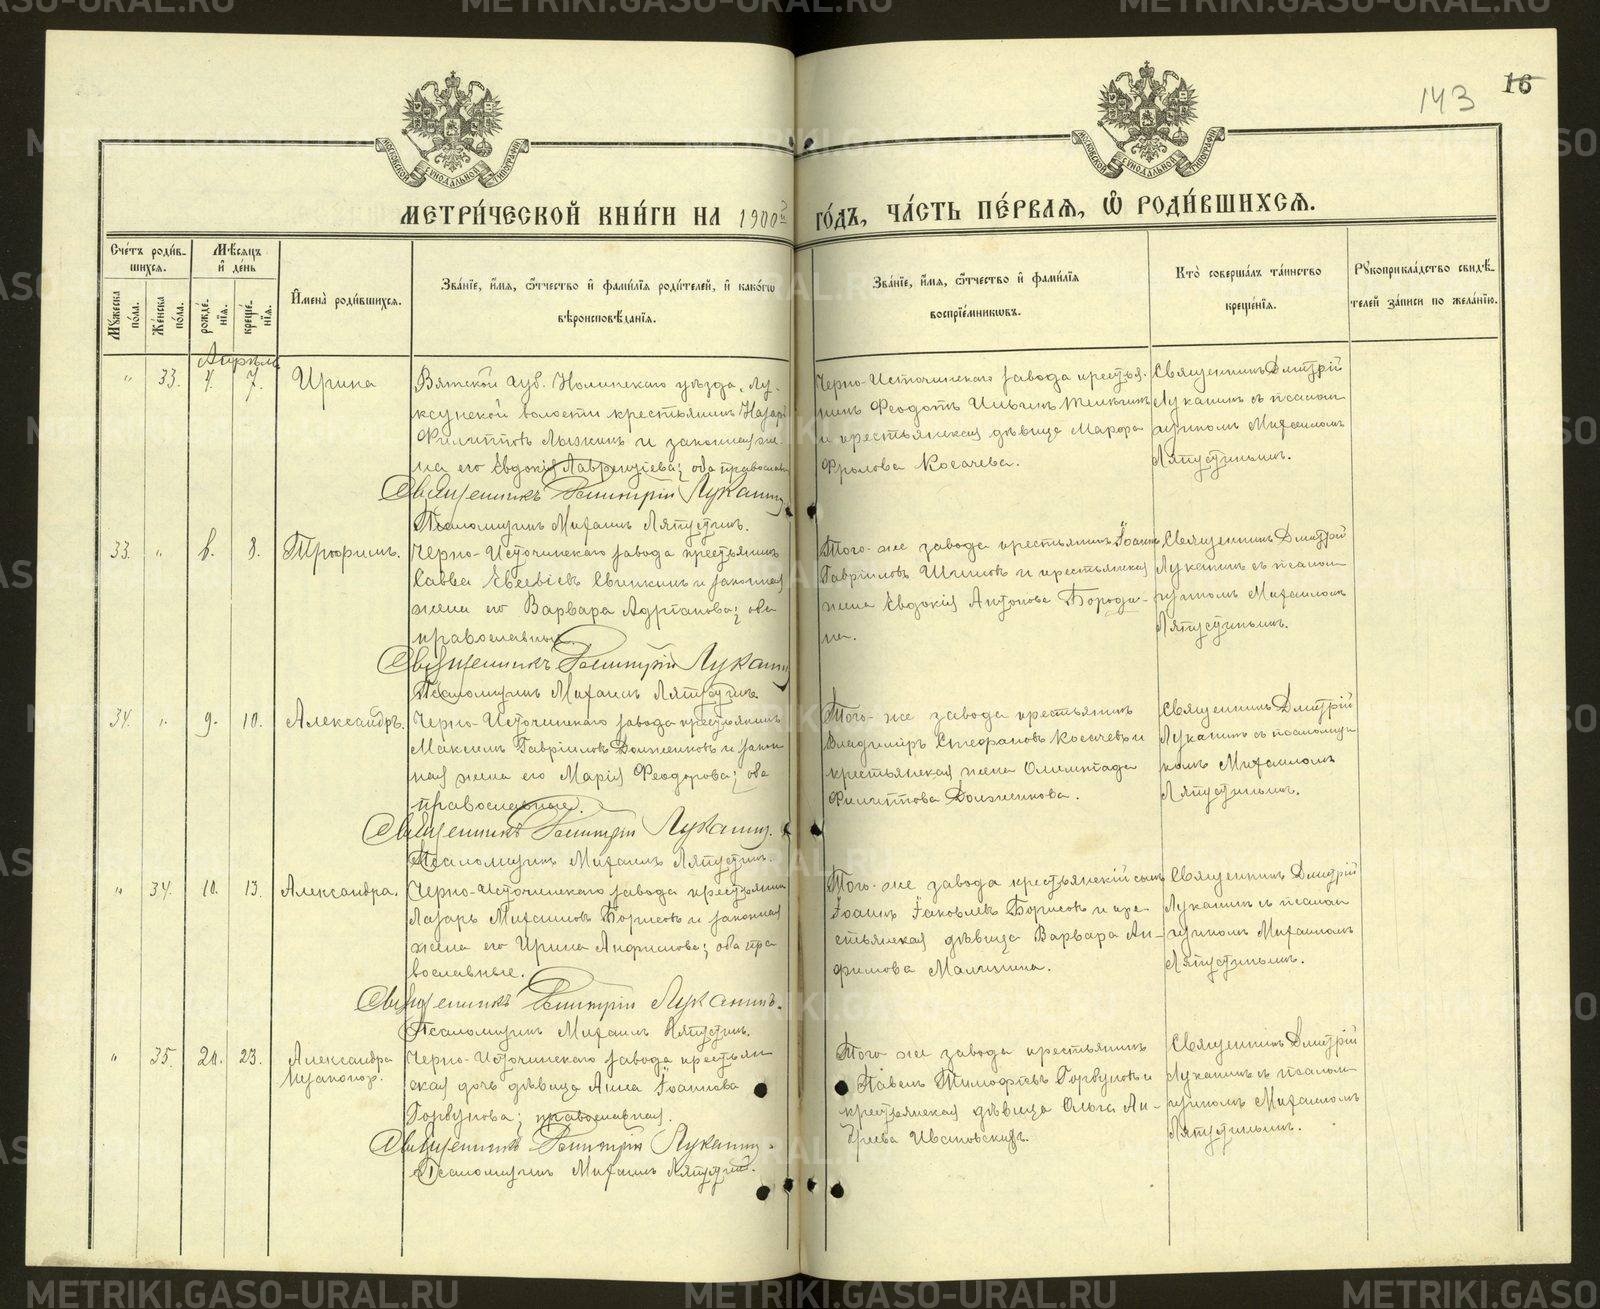 143
16
МОСКОВСКОЙ СУНОДАЛЬНОЙ ТИПОГРАФІИ
МОСКОВСКОЙ СУНОДАЛЬНОЙ ТИПОГРАФІИ
МЕТРИ́ЧЕСКОЙ КНИ́ГИ НА 1900й ГО́ДЪ, ЧА́СТЬ ПЕ́РВАѦ, Ѽ РОДИ́ВШИХСѦ.
Сче́тъ роди́вшихсѧ.
Мꙋ́жеска по́ла.
Же́нска по́ла.
Мѣ́сѧцъ и҆ де́нь
рожде́нїѧ.
креще́нїѧ.
И҆мена̀ роди́вшихсѧ.
Зва́нїе, и҆́мѧ, ѻ҆́тчество и҆ фами́лїѧ роди́телей, и҆ како́гѡ
вѣроисповѣ́данїѧ.
Зва́нїе, и҆́мѧ, ѻ҆́тчество и҆ фами́лїѧ
воспрїе́мникѡвъ.
Кто̀ соверша́лъ та́инство
креще́нїѧ.
Рꙋкоприкла́дство свидѣ́телей за́писи по жела́нїю.
Апрѣль
" 33. 4. 7. Ирина
Вятской губ. Нолинскаго уѣзда, Лу-
ксунской волости крестьянинъ Назаръ
Филипповъ Лыжинъ и законная же-
на его Евдокія Лаврентіева; оба православн
Священникъ Димитрій Луканинъ
Псаломщикъ Михаилъ Ляпустинъ.
Черно-Источинскаго завода крестья-
нинъ Феодотъ Ильинъ
и крестьянская дѣвица Мавра
Фролова Косачева.
Священникъ Дмитрій
Луканинъ съ псалом
щикомъ Михаиломъ
Ляпустинымъ.
33. " 6. 8. Трофимъ.
Черно-Источинскаго завода крестьянинъ
Савва Евсевіевъ Свинкинъ и законная
жена его Варвара Адріанова; оба
православные.
Священникъ Димитрій Луканинъ
Псаломщикъ Михаилъ Ляпустинъ
Того-же завода крестьянинъ Іоаннъ
Гавріиловъ Шишовъ и крестьянская
жена Евдокія Антонова Бороди-
на.
Священникъ Дмитрій
Луканинъ съ псалом
щикомъ Михаиломъ
Ляпустинымъ.
34. " 9. 10. Александръ.
Черно-Источинскаго завода крестьянинъ
Максимъ Гавріиловъ Долженковъ и закон
ная жена его Марія Феодорова; оба
православные.
Священникъ Димитрій Луканинъ.
Псаломщикъ Михаилъ Ляпустинъ.
Того-же завода крестьянинъ
Владиміръ Стефановъ Косачевъ и
крестьянская жена Олимпіада
Филиппова Долженкова.
Священникъ Дмитрій
Луканинъ съ псаломщи
комъ Михаиломъ
Ляпустинымъ.
" 34. 10. 13. Александра.
Черно-Источинскаго завода крестьянинъ
Лазарь Михаиловъ Борисовъ и законная
жена его Ирина Анфимова; оба пра
вославные.
Священникъ Димитрій Луканинъ.
Псаломщикъ Михаилъ Ляпустинъ.
Того-же завода крестьянскій сынъ
Іоаннъ Іаковлевъ Борисовъ и кре-
стьянская дѣвица Варвара Ан-
фимова Малинина.
Священникъ Дмитрій
Луканинъ съ псалом
щикомъ Михаиломъ
Ляпустинымъ.
" 35. 20. 23. Александра
незаконор.
Черно-Источинскаго завода крестьян
ская дочь дѣвица Анна Іоаннова
Горбунова; православная.
Священникъ Димитрій Луканинъ.
Псаломщикъ Михаилъ Ляпустинъ.
Того же завода крестьянинъ
Павелъ Тимофѣевъ Горбуновъ и
крестьянская дѣвица Ольга Ан-
дреева
Священникъ Дмитрій
Луканинъ съ псалом
щикомъ Михаиломъ
Ляпустинымъ.
METRIKI.GASO-URAL.RU